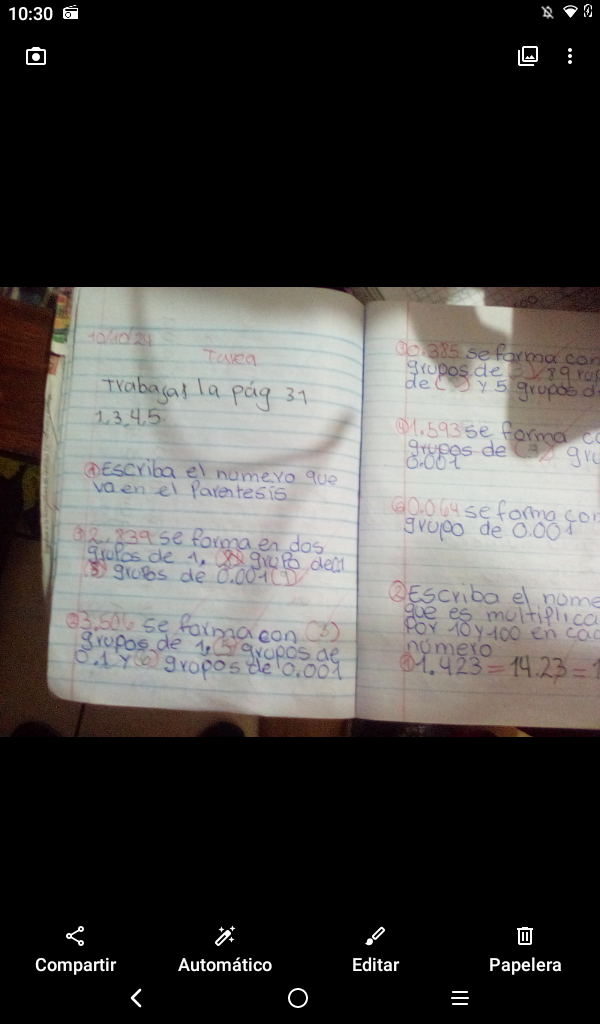 10:30
10/10/24
Tarea
Trabajar la pág 31
1,3,4,5.
① Escriba el numero que
va en el Parentesis
① 2.839 se forma en dos
grupos de 1, (8) grupo de
(3) grupos de 0.001 (9)
② 3.506 se forma con (3)
grupos de 1, (5) grupos de
0.1 y (6) grupos de 0.001
③ 0.385 se forma con
grupos de
de ( ) y 5 grupos d
④ 1.593 se forma co
grupos de (3) gru
0.001
0.064 se forma con
grupo de 0.001
② Escriba el nume
que es multiplica
Por 10 y 100 en cad
número
① 1.423 = 14.23 = 1
Compartir
Automático
Editar
Papelera